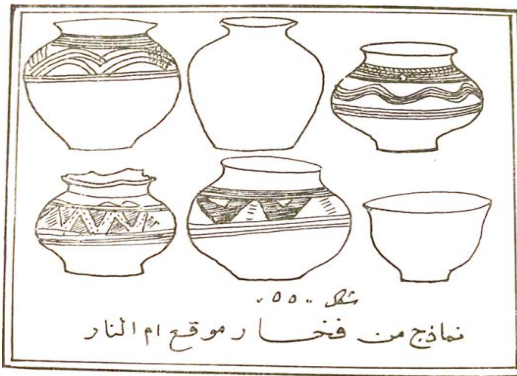 شكل ٥٥٠
نماذج من فخار موقع ام النار